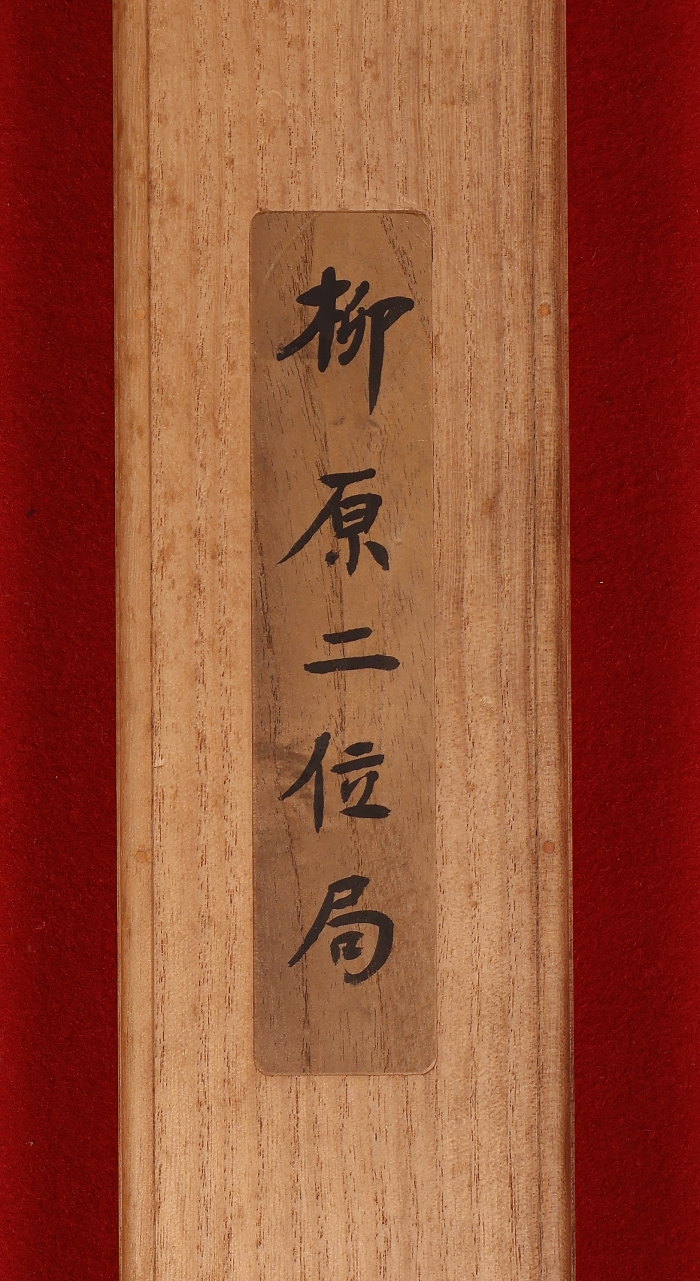 柳原二位局